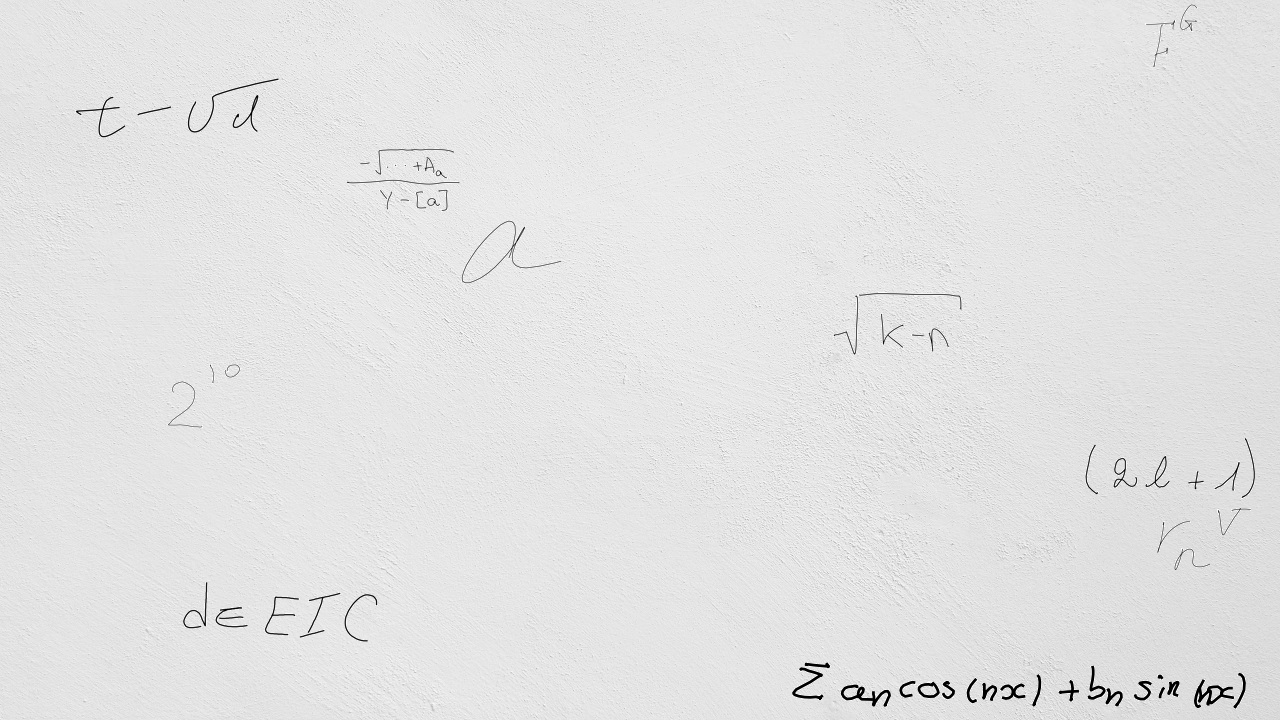 F^G
t - √d
(-√(⋯ + A_a)) / (Y - [a])
a
√(k - n)
2^10
(2l + 1)
r_n^V
d ∈ E I C
Σ a_n cos(nx) + b_n sin(nx)